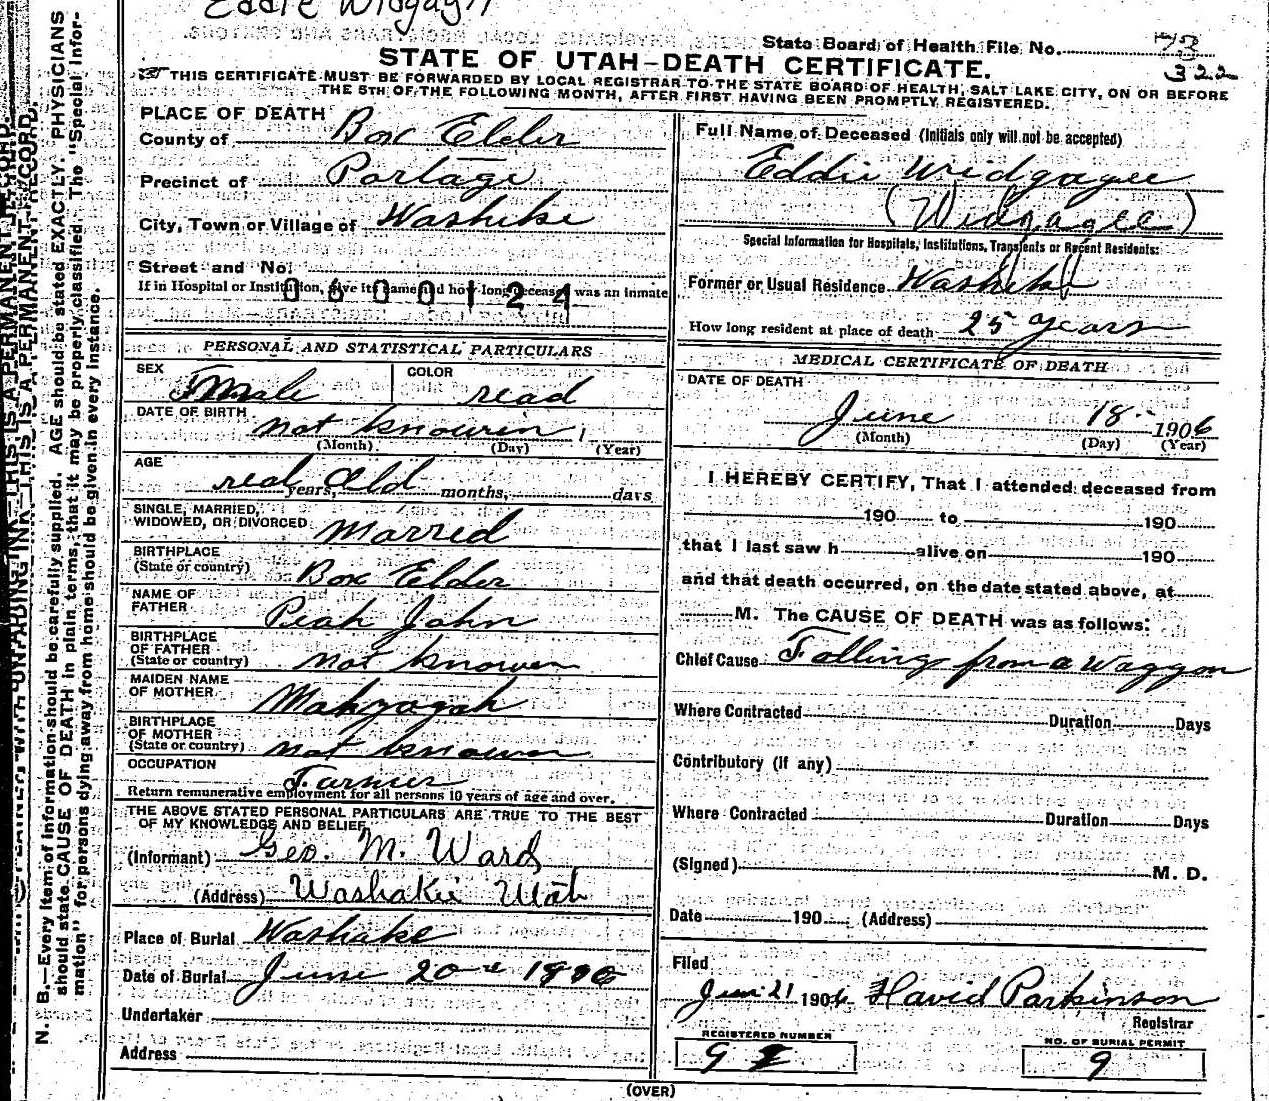 Eddie Widgagii
State Board of Health File No. 73
322
STATE OF UTAH—DEATH CERTIFICATE.
THIS CERTIFICATE MUST BE FORWARDED BY LOCAL REGISTRAR TO THE STATE BOARD OF HEALTH, SALT LAKE CITY, ON OR BEFORE
THE 5TH OF THE FOLLOWING MONTH, AFTER FIRST HAVING BEEN PROMPTLY REGISTERED.
PLACE OF DEATH
County of Box Elder
Precinct of Portage
City, Town or Village of Washike
Street and No.
If in Hospital or Institution, give its name and how long deceased was an inmate
0600124
PERSONAL AND STATISTICAL PARTICULARS
SEX Male
COLOR read
DATE OF BIRTH not knowin 1
(Month) (Day) (Year)
AGE real Old
years, months, days
SINGLE, MARRIED,
WIDOWED, OR DIVORCED Marred
BIRTHPLACE
(State or country) Box Elder
NAME OF
FATHER Peah John
BIRTHPLACE
OF FATHER
(State or country) not knowen
MAIDEN NAME
OF MOTHER Mahzagah
BIRTHPLACE
OF MOTHER
(State or country) not knowen
OCCUPATION Farmer
Return remunerative employment for all persons 10 years of age and over.
THE ABOVE STATED PERSONAL PARTICULARS ARE TRUE TO THE BEST
OF MY KNOWLEDGE AND BELIEF
(Informant) Geo. M. Ward
(Address) Washakie Utah
Place of Burial Washake
Date of Burial June 20 1906
Undertaker
Address
Full Name of Deceased (Initials only will not be accepted)
Eddie Widgagee
(Widgagee)
Special Information for Hospitals, Institutions, Transients or Recent Residents:
Former or Usual Residence Washike
How long resident at place of death 25 years
MEDICAL CERTIFICATE OF DEATH
DATE OF DEATH
June 18 1906
(Month) (Day) (Year)
I HEREBY CERTIFY, That I attended deceased from
190 to 190
that I last saw h alive on 190
and that death occurred, on the date stated above, at
M. The CAUSE OF DEATH was as follows:
Chief Cause Falling from a waggon
Where Contracted Duration Days
Contributory (if any)
Where Contracted Duration Days
(Signed) M. D.
Date 190 (Address)
Filed
June 21 1906 David Parkinson
Registrar
REGISTERED NUMBER
9
NO. OF BURIAL PERMIT
9
(OVER)
N. B.—Every item of information should be carefully supplied. AGE should be stated EXACTLY. PHYSICIANS
should state CAUSE OF DEATH in plain terms, that it may be properly classified. The "Special Infor-
mation" for persons dying away from home should be given in every instance.
THIS IS A PERMANENT RECORD.